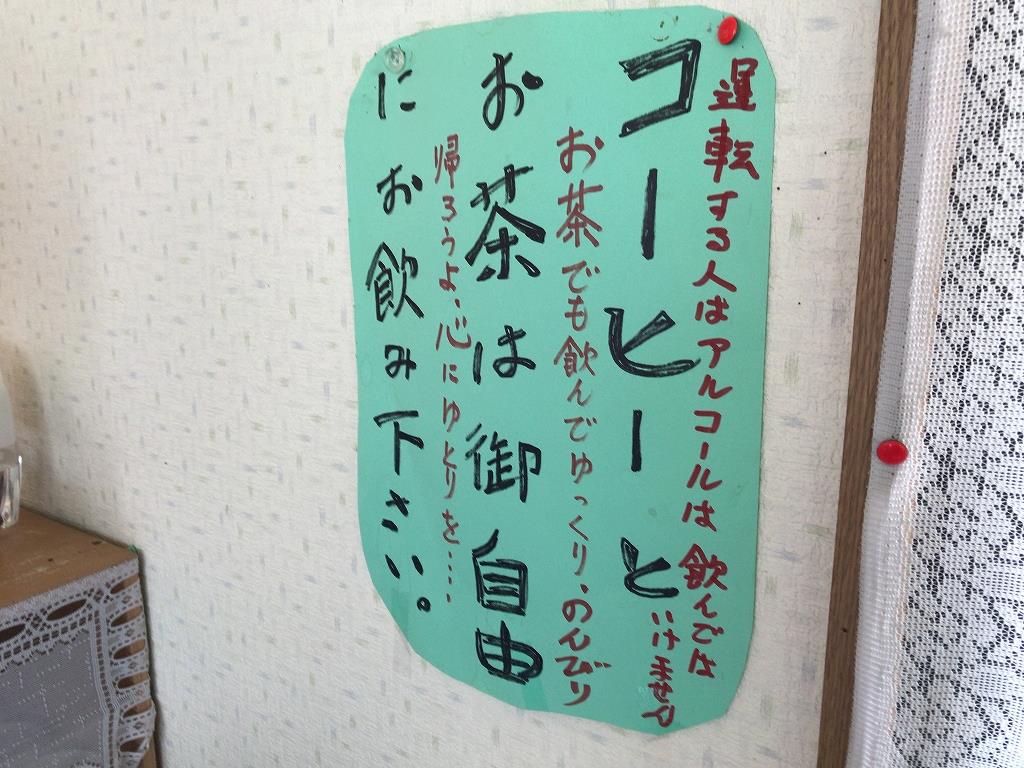 運転する人はアルコールは飲んでは
いけません
コーヒーと
お茶でも飲んでゆっくり、のんびり
お茶は御自由
帰ろうよ、心にゆとりを・・・・
にお飲み下さい。